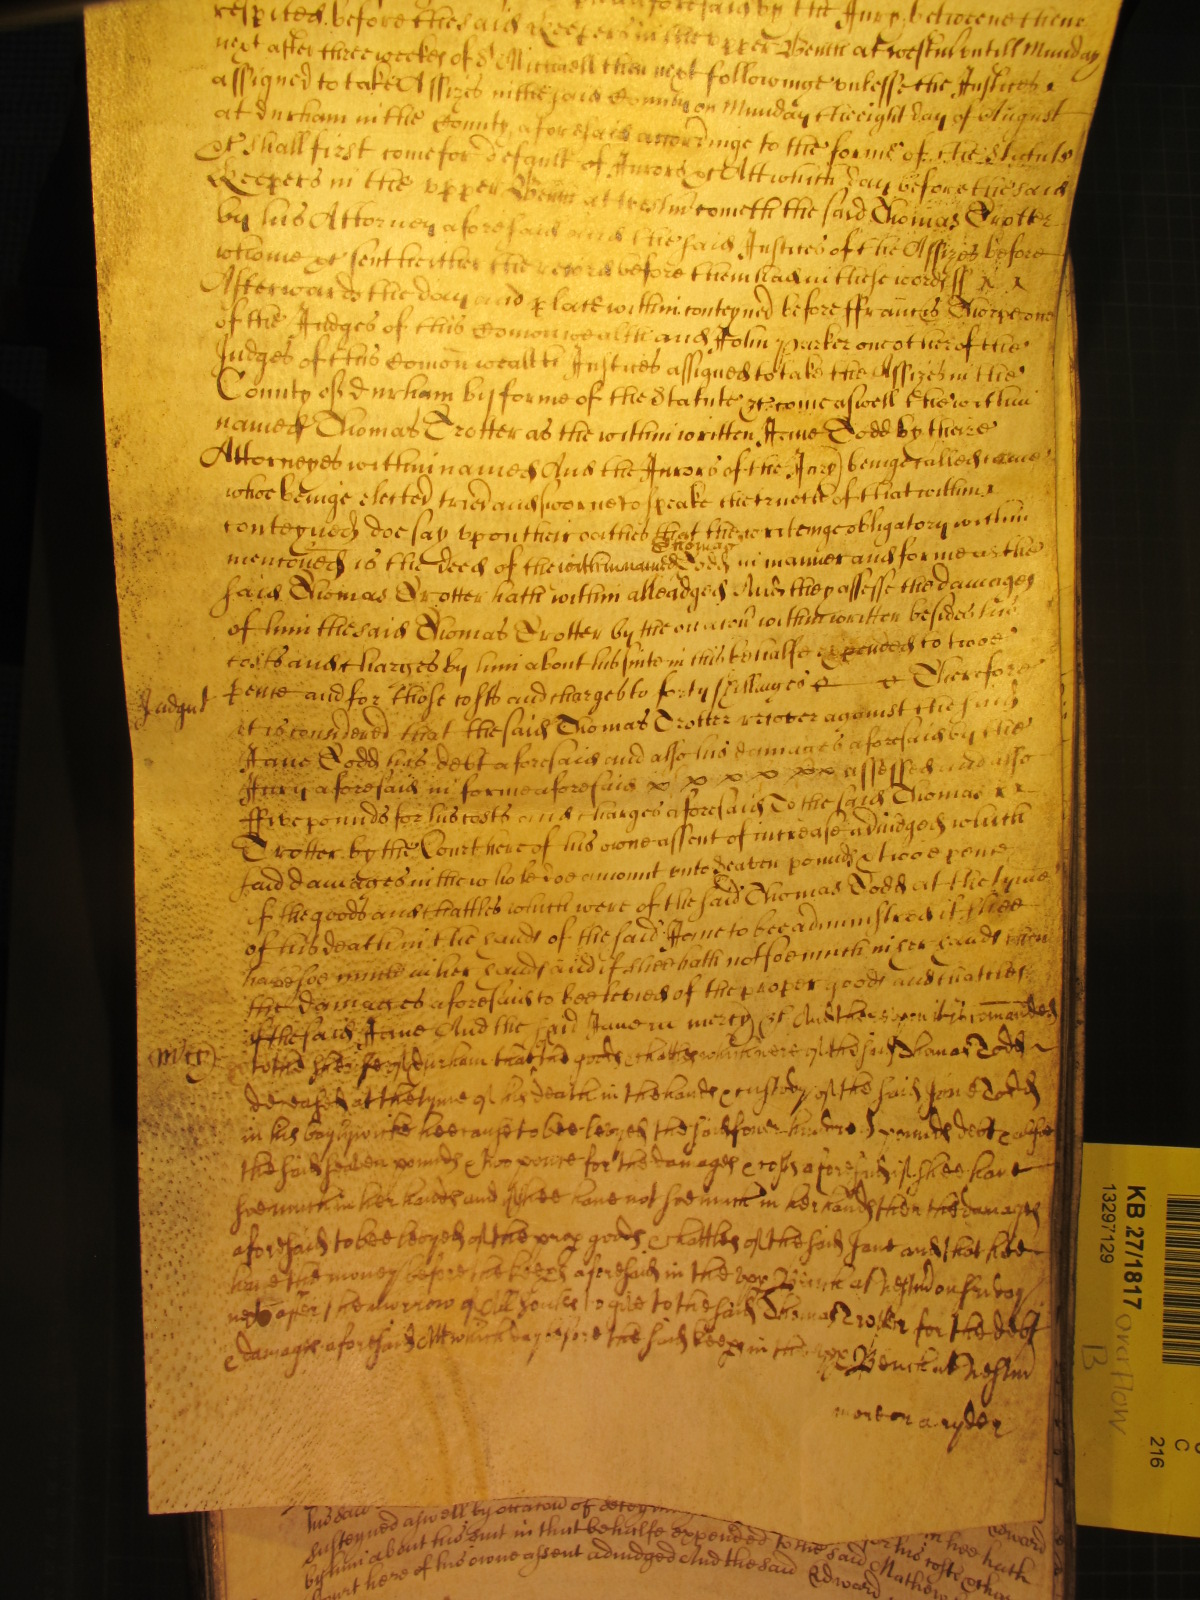 aforesaid by the Jury betweene them
respited before the said Keepers in the upper Bench at Westm untill Munday
next after three weekes of St Michaell then next followinge unlesse the Justices
assigned to take Assizes in the said County on Munday the eight day of August
at Durham in the County aforesaid accordinge to the forme of the statute
&c shall first come for default of Jurors &c Att which day before the said
Keepers in the upper Bench at Westm cometh the said Thomas Trotter
by his Attorney aforesaid and the said Justices of the Assizes before
whome &c sent hither the record before them had in these words ss
Afterwards the day and place within conteyned before Ffrancis Thorpe one
of the Judges of this Comonwealth and John Parker one other of the
Judges of this Comonwealth Justices assigned to take the Assizes in the
County of Durham by forme of the Statute &c come aswell the within
named Thomas Trotter as the within written Jane Todd by there
Attorneyes within named And the Jurors of the Jury beinge called came
whoe beinge elected tried and sworne to speake the trueth of that within
conteyned doe say upon their oathes that the writeinge obligatory within
mentoned is the deed of the within named Thomas Todd in manner and forme as the
said Thomas Trotter hath within alleadged And they assesse the damages
of him the said Thomas Trotter by the occacon within written besides his
costs and charges by him about his suite in this behalfe expended to twoe
pence and for those costs and charges to forty shillinges Therefore
Judgmt
it is considered that the said Thomas Trotter recover against the said
Jane Todd his debt aforesaid and also his damages aforesaid by the
Jury aforesaid in forme aforesaid assessed and also
Ffive pounds for his costs and charges aforesaid To the said Thomas
Trotter by the Court here of his owne assent of increase adiudged which
said damages in the whole doe amount unto seaven pounds & twoe pence
of the goods and chattles which were of the said Thomas Todd at the tyme
of his death in the hands of the said Jane to bee administred if shee
have soe much in her hands and if shee hath not soe much in her hands then
the damages aforesaid to bee levied of the proper goods and chattles
of the said Jane And the said Jane in mercy &c And thereupon it is comanded
(mercy)
to the Sheriffe of Durham that the goods & chattles which were of the said Thomas Todd
deceased at the tyme of his death in the hands & custody of the said Jane Todd
in his baylywicke hee cause to bee levyed the said fower hundred pounds debt & alsoe
the said seaven pounds & two pence for the damages & costs aforesaid if shee have
soe much in her hands and if shee have not soe much in her hands then the damages
aforesaid to bee levyed of the prop goods & chattles of the said Jane and that hee
have the money before the keeps aforesaid in the upp Bench at Westm on friday
next after the morrow of All Soules to give to the said Thomas Trotter for the debt
& damages aforesaid Att which day before the said keeps in the upp Bench at Westm
Jane
susteyned aswell by occacon of deteyning
by him about his suit in that behalfe expended to the said Mathew
Court here of his owne assent adiudged And the said Edward
for his costs & char
in hee hath
Edward
KB 27/1817 overflow
13297129
B
C
216